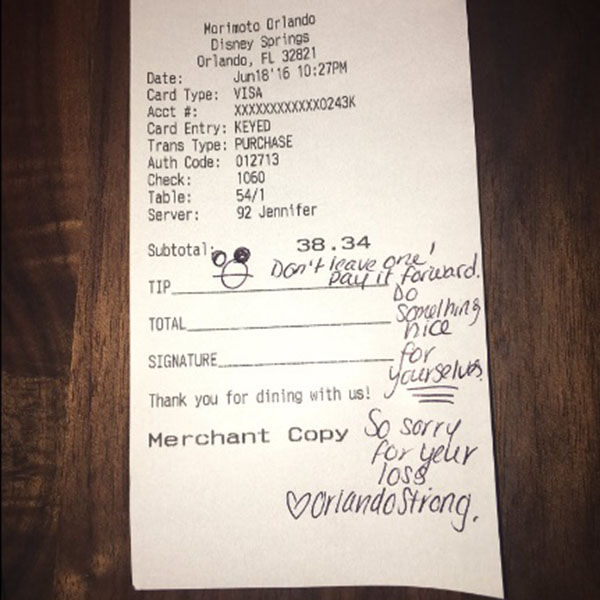 Morimoto Orlando
Disney Springs
Orlando, FL 32821
Date: Jun18'16 10:27PM
Card Type: VISA
Acct #: XXXXXXXXXXXX0243K
Card Entry: KEYED
Trans Type: PURCHASE
Auth Code: 012713
Check: 1060
Table: 54/1
Server: 92 Jennifer
Subtotal: 38.34
Don't leave one!
TIP Pay it forward.
Do
TOTAL Something
nice
SIGNATURE for
yourselves.
Thank you for dining with us!
Merchant Copy So sorry
for your
loss
♡OrlandoStrong.